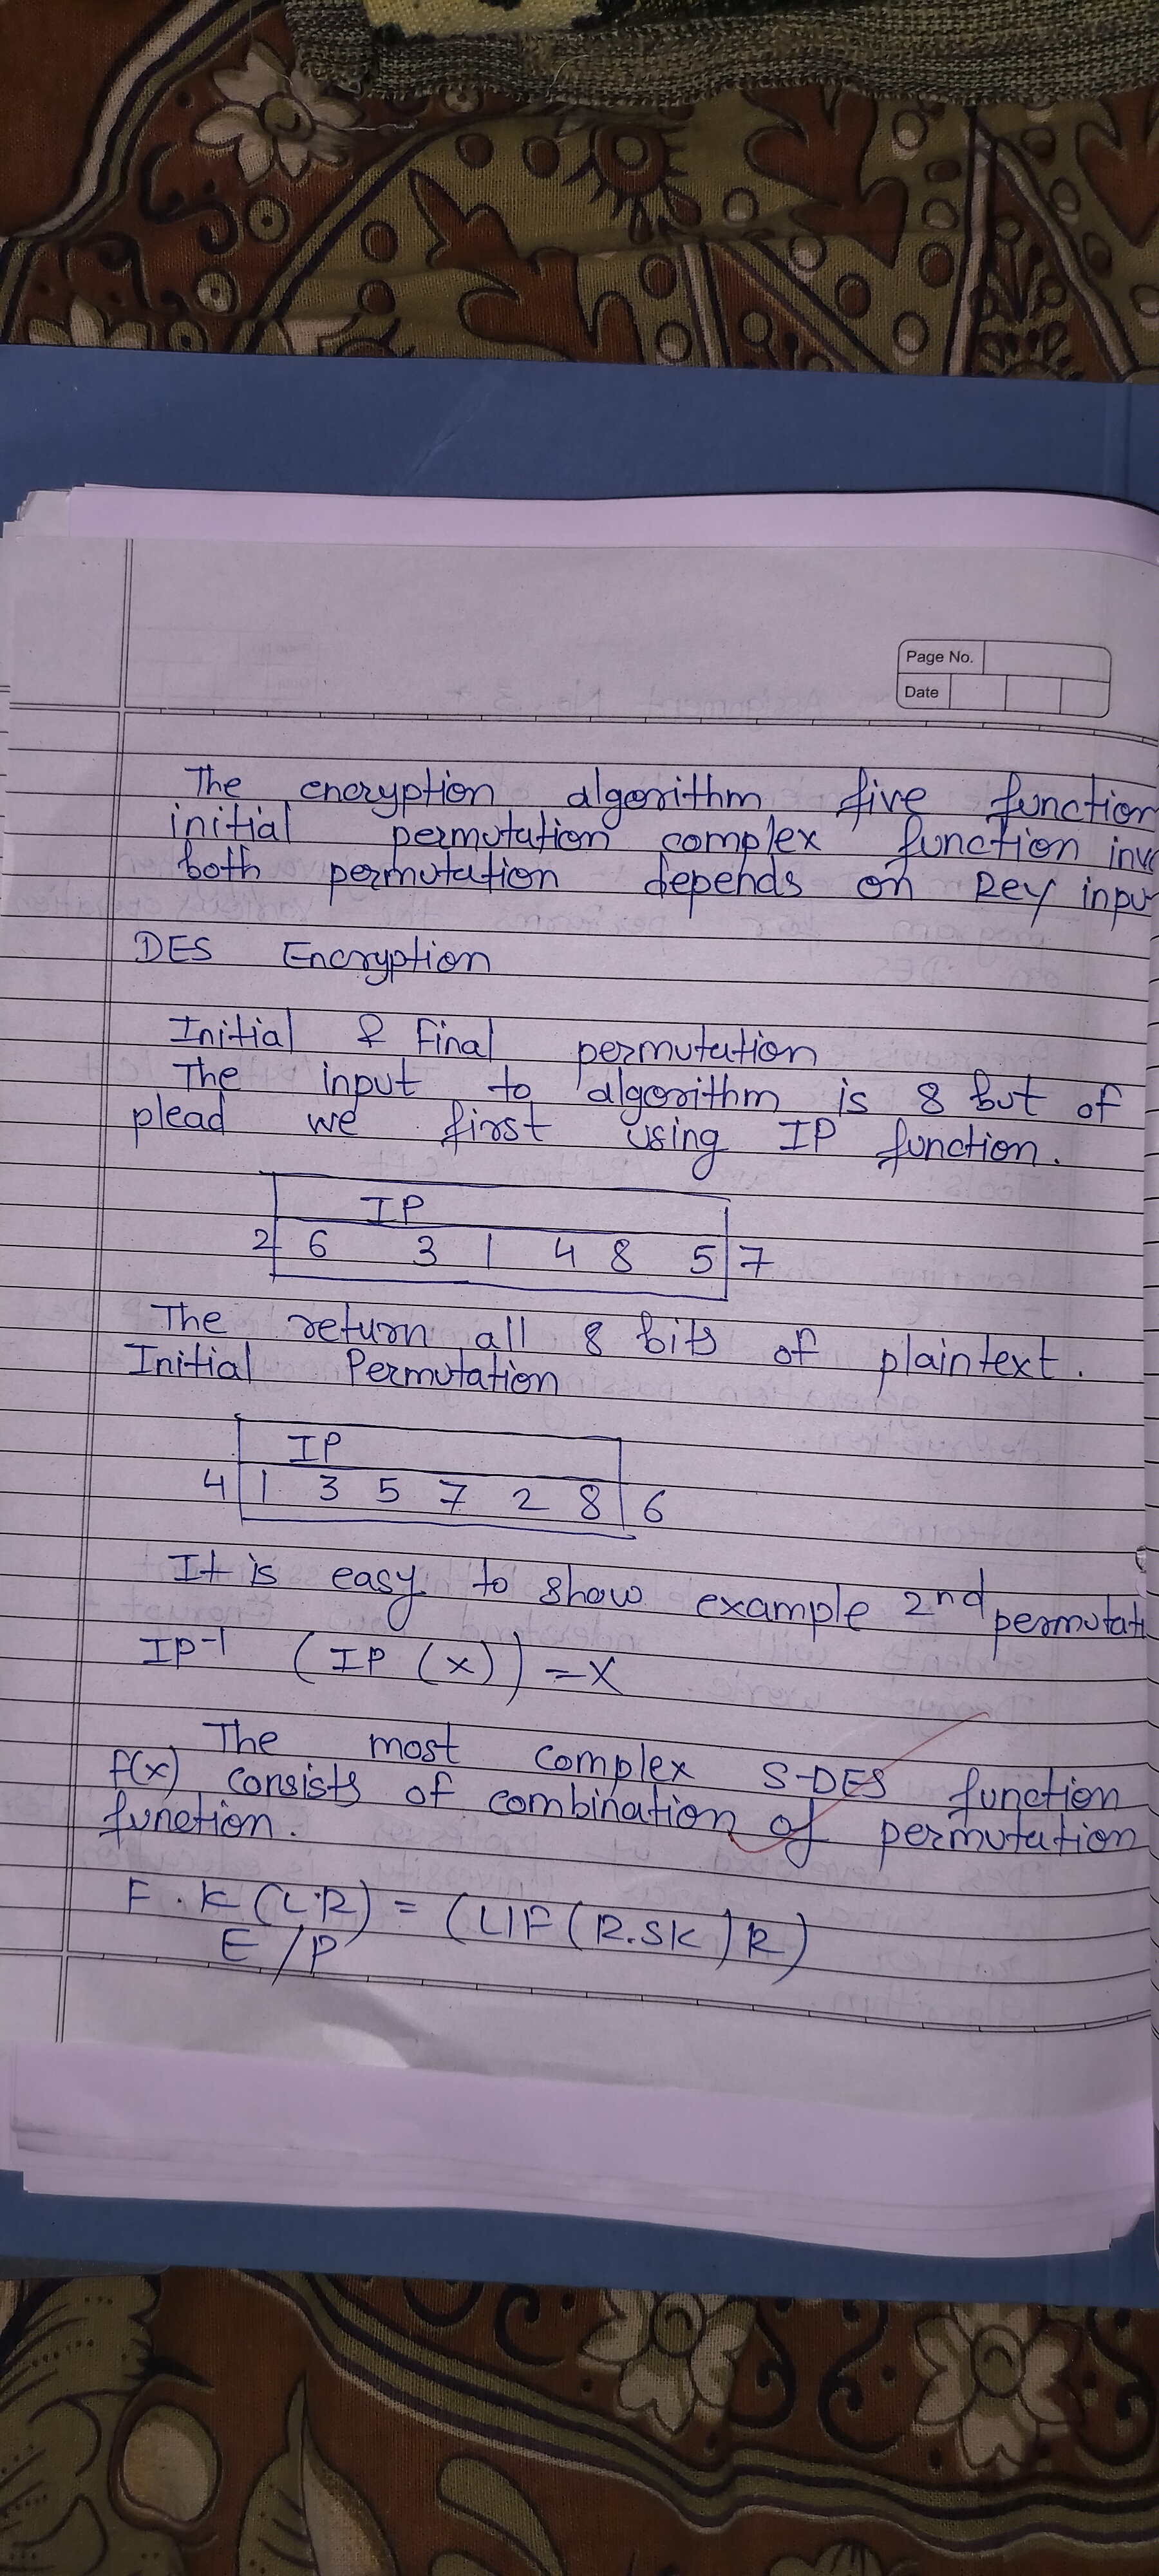 Page No.
Date
The encryption algorithm five function
initial permutation complex function inv
both permutation depends on key inpu
DES Encryption
Initial & Final permutation
The input to algorithm is 8 but of
plead we first using IP function.
IP
2 6 3 1 4 8 5 7
The return all 8 bits of plaintext.
Initial Permutation
IP
4 1 3 5 7 2 8 6
It is easy to show example 2nd permutati
IP-1 (IP (x)) = X
The most complex S-DES function
f(x) consists of combination of permutation
function.
F . K (L.R) = (LIF (R.SK) R)
E/P